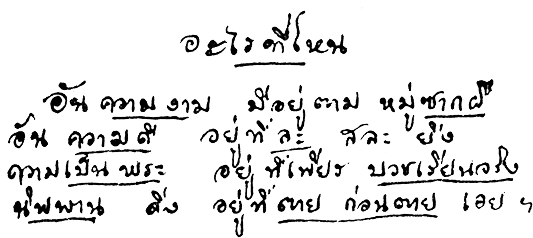 อะไรที่ไหน
อันความงาม มีอยู่ตาม หมู่ซากผี
อันความดี อยู่ที่ละ สละ ยิ่ง
ความเป็นพระ อยู่ที่เพียร บวชเรียนจริง
นิพพาน ดิ่ง อยู่ที่ตาย ก่อนตาย เอย ฯ